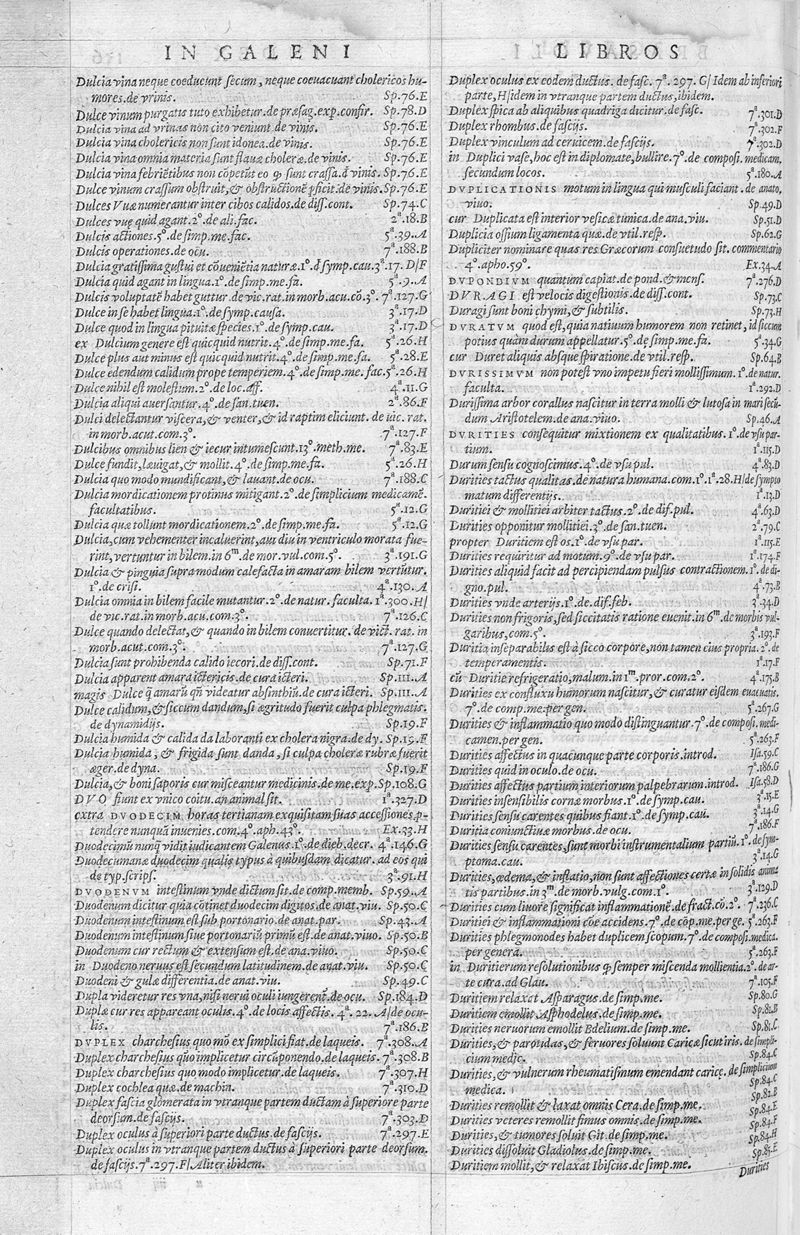 IN GALENI
Dulcia vina neque coeducunt secum, neque coeuacuant cholericos hu-
mores. de vrinis. Sp.76.E
Dulce vinum purgatis tuto exhibetur. de præsag. exp. confir. Sp.78.D
Dulcia vina ad vrinas non cito veniunt. de vinis. Sp.76.E
Dulcia vina cholericis non sunt idonea. de vinis. Sp.76.E
Dulcia vina omnia materia sunt flauæ choleræ. de vinis. Sp.76.E
Dulcia vina febriētibus non cōpetūt eo ꝙ sunt crassa. d̄ vinis. Sp.76.E
Dulce vinum crassum obstruit, & obstructionē ꝑficit. de vinis. Sp.76.E
Dulces Vuæ numerantur inter cibos calidos. de diss. cont. Sp.74.C
Dulces vuę quid agant. 2º. de ali. fac. 2ª.18.B
Dulcis actiones. 5º. de simp. me. fac. 5ª.39.A
Dulcis operationes. de ocu. 7ª.188.B
Dulcia gratissima gustui et cōueniētia naturæ. 1º. d̄ symp. cau. 3ª.17.D/F
Dulcia quid agant in lingua. 1º. de simp. me. fa. 5ª.9.A
Dulcis voluptatē habet guttur. de vic. rat. in morb. acu. cō. 3º. 7ª.127.G
Dulce in se habet lingua. 1º. de symp. causa. 3ª.17.D
Dulce quod in lingua pituitæ species. 1º. de symp. cau. 3ª.17.D
ex Dulcium genere est quicquid nutrit. 4º. de simp. me. fa. 5ª.26.H
Dulce plus aut minus est quicquid nutrit. 4º. de simp. me. fa. 5ª.28.E
Dulce edendum calidum prope temperiem. 4º. de simp. me. fac. 5ª.26.H
Dulce nihil est molestum. 2º. de loc. aff. 4ª.11.G
Dulcia aliqui auersantur. 4º. de san. tuen. 2ª.86.F
Dulci delectantur viscera, & venter, & id raptim eliciunt. de vic. rat.
in morb. acut. com. 3º. 7ª.127.F
Dulcibus omnibus lien & iecur intumescunt. 13º. meth. me. 7ª.83.E
Dulce fundit, læuigat, & mollit. 4º. de simp. me. fa. 5ª.26.H
Dulcia quo modo mundificant, & lauant. de ocu. 7ª.188.C
Dulcia mordicationem protinus mitigant. 2º. de simplicium medicamē.
facultatibus. 5ª.12.G
Dulcia quæ tollunt mordicationem. 2º. de simp. me. fa. 5ª.12.G
Dulcia, cum vehementer incaluerint, aut diu in ventriculo morata fue-
rint, vertuntur in bilem. in 6ᵐ. de mor. vul. com. 5º. 3ª.191.G
Dulcia & pinguia supra modum calefacta in amaram bilem vertūtur.
1º. de crisi. 4ª.130.A
Dulcia omnia in bilem facile mutantur. 2º. de natur. faculta. 1ª.300.H/
de vic. rat. in morb. acu. com. 3º. 7ª.126.C
Dulce quando delectat, & quando in bilem conuertitur. de vict. rat. in
morb. acut. com. 3º. 7ª.127.G
Dulcia sunt prohibenda calido iecori. de diss. cont. Sp.71.F
Dulcia apparent amara ictericis. de cura icteri. Sp.111.A
magis Dulce q̄ amarū qn̄ videatur absinthiū. de cura icteri. Sp.111.A
Dulce calidum, & siccum dandum, si ægritudo fuerit culpa phlegmatis.
de dynamidijs. Sp.19.F
Dulcia humida & calida da laboranti ex cholera nigra. de dy. Sp.19.F
Dulcia humida, & frigida sunt danda, si culpa choleræ rubræ fuerit
æger. de dyna. Sp.19.F
Dulcia, & boni saporis cur misceantur medicinis. de me. exp. Sp.108.G
DVO fiunt ex vnico coitu. an animal sit. 1ª.327.D
extra DVODECIM horas tertianam exquisitam suas accessiones ꝓ-
tendere nunquā inuenies. com. 4º. aph. 43º. Ex.33.H
Duodecimū nunq̄ vidit iudicantem Galenus. 1º. de dieb. decr. 4ª.146.G
Duodecimanæ duodecim qualis typus à quibusdam dicatur. ad eos qui
de typ. scrips. 3ª.91.H
DVODENVM intestinum vnde dictum sit. de comp. memb. Sp.59.A
Duodenum dicitur quia cōtinet duodecim digitos. de anat. viu. Sp.50.C
Duodenum intestinum est sub portonario. de anat. par. Sp.43.A
Duodenum intestinum siue portonariū primū est. de anat. viuo. Sp.50.B
Duodenum cur rectum & extensum est. de ana. viuo. Sp.50.C
in Duodeno neruus est secundum latitudinem. de anat. viu. Sp.50.C
Duodeni & gulæ differentia. de anat. viu. Sp.49.C
Dupla videretur res vna, nisi nerui oculi iungerent̄. de ocu. Sp.184.D
Duplæ cur res appareant oculis. 4º. de locis affectis. 4ª.22.A/de ocu-
lis. 7ª.186.B
DVPLEX charchesius quo mō ex simplici fiat. de laqueis. 7ª.308.A
Duplex charchesius quo implicetur circūponendo. de laqueis. 7ª.308.B
Duplex charchesius quo modo implicetur. de laqueis. 7ª.307.H
Duplex cochlea quæ. de machin. 7ª.310.D
Duplex fascia glomerata in vtranque partem ductam à superiore parte
deorsum. de fascijs. 7ª.303.D
Duplex oculus à superiori parte ductus. de fascijs. 7ª.297.E
Duplex oculus in vtranque partem ductus à superiori parte deorsum.
de fascijs. 7ª.297.F/Aliter ibidem.
LIBROS
Duplex oculus ex eodem ductus. de fasc. 7ª.297.G/Idem ab inferiori
parte, H/idem in vtranque partem ductus, ibidem.
Duplex spica ab aliquibus quadriga dicitur. de fasc. 7ª.301.D
Duplex rhombus. de fascijs. 7ª.302.F
Duplex vinculum ad ceruicem. de fascijs. 7ª.302.D
in Duplici vase, hoc est in diplomate, bullire. 7º. de composi. medicam.
secundum locos. 5ª.180.A
DVPLICATIONIS motum in lingua qui musculi faciant. de anato.
viuo. Sp.49.D
cur Duplicata est interior vesicæ tunica. de ana. viu. Sp.51.D
Duplicia ossium ligamenta quæ. de vtil. resp. Sp.62.G
Dupliciter nominare quas res Græcorum consuetudo sit. commentario
4º. apho. 59º. Ex.34.A
DVPONDIVM quantum capiat. de pond. & mens. 7ª.276.D
DVRAGI est velocis digestionis. de diss. cont. Sp.73.C
Duragi sunt boni chymi, & subtilis. Sp.73.H
DVRATVM quod est, quia natiuum humorem non retinet, id siccum
potius quàm durum appellatur. 5º. de simp. me. fa. 5ª.34.G
cur Duret aliquis absque spiratione. de vtil. resp. Sp.64.B
DVRISSIMVM non potest vno impetu fieri mollissimum. 1º. de natur.
faculta. 1ª.292.D
Durissima arbor corallus nascitur in terra molli & lutosa in mari secū-
dum Aristotelem. de ana. viuo. Sp.46.A
DVRITIES consequitur mixtionem ex qualitatibus. 1º. de vsu par-
tium. 1ª.115.D
Durum sensu cognoscimus. 4º. de vsu pul. 4ª.83.D
Durities tactus qualitas. de natura humana. com. 1º. 1ª.28.H/de sympto
matum differentijs. 1ª.13.D
Duritiei & mollitiei arbiter tactus. 2º. de dif. pul. 4ª.63.D
Durities opponitur mollitiei. 3º. de san. tuen. 2ª.79.C
propter Duritiem est os. 1º. de vsu par. 1ª.115.E
Durities requiritur ad motum. 9º. de vsu par. 1ª.174.F
Durities aliquid facit ad percipiendam pulsus contractionem. 1º. de di-
gno. pul. 4ª.73.B
Durities vnde arterijs. 1º. de dif. feb. 3ª.34.D
Durities non frigoris, sed siccitatis ratione euenit. in 6ᵐ. de morbis vul-
garibus, com. 5º. 3ª.193.F
Duritia inseparabilis est à sicco corpore, non tamen eius propria. 2º. de
temperamentis. 1ª.17.F
cū Duritie refrigeratio, malum. in 1ᵐ. pror. com. 2º. 4ª.175.B
Durities ex confluxu humorum nascitur, & curatur eisdem euacuatis.
7º. de comp. me. per gen. 5ª.267.G
Durities & inflammatio quo modo distinguantur. 7º. de composi. medi-
camen. per gen. 5ª.263.F
Durities affectus in quacunque parte corporis. introd. Isa.59.C
Durities quid in oculo. de ocu. 7ª.186.G
Durities affectus partium interiorum palpebrarum. introd. Isa.58.D
Durities insensibilis cornæ morbus. 1º. de symp. cau. 3ª.15.E
Durities sensu carentes quibus fiant. 1º. de symp. cau. 3ª.14.G
Duritia coniunctiuæ morbus. de ocu. 7ª.186.F
Durities sensu carentes, sunt morbi instrumentalium partiū. 1º. de sym-
ptoma. cau. 3ª.14.G
Durities, œdema, & inflatio, non sunt affectiones certæ in solidis anima
tis partibus. in 3ᵐ. de morb. vulg. com. 1º. 3ª.129.D
Durities cum liuore significat inflammationē. de fract. cō. 2º. 7ª.236.C
Duritiei & inflammationi cōe accidens. 7º. de cōp. me. per ge. 5ª.263.F
Durities phlegmonodes habet duplicem scopum. 7º. de composi. medica.
per genera. 5ª.263.F
in Duritierum resolutionibus ꝙ semper miscenda mollientia. 2º. de ar-
te cura. ad Glau. 7ª.105.F
Duritiem relaxat Asparagus. de simp. me. Sp.80.G
Duritiem emollit Asphodelus. de simp. me. Sp.82.B
Durities neruorum emollit Bdelium. de simp. me. Sp.81.C
Durities, & parotidas, & feruores soluunt Caricæ sicut iris. de simpli-
cium medic. Sp.84.C
Durities, & vulnerum rheumatismum emendant caricę. de simplicium
medica. Sp.84.C
Durities remollit & laxat omnis Cera. de simp. me. Sp.82.B
Durities veteres remollit fimus omnis. de simp. me. Sp.84.E
Durities, & tumores soluit Git. de simp. me. Sp.84.H
Durities dissoluit Gladiolus. de simp. me. Sp.84.H
Duritiem mollit, & relaxat Ibiscus. de simp. me. Sp.85.E
Durities